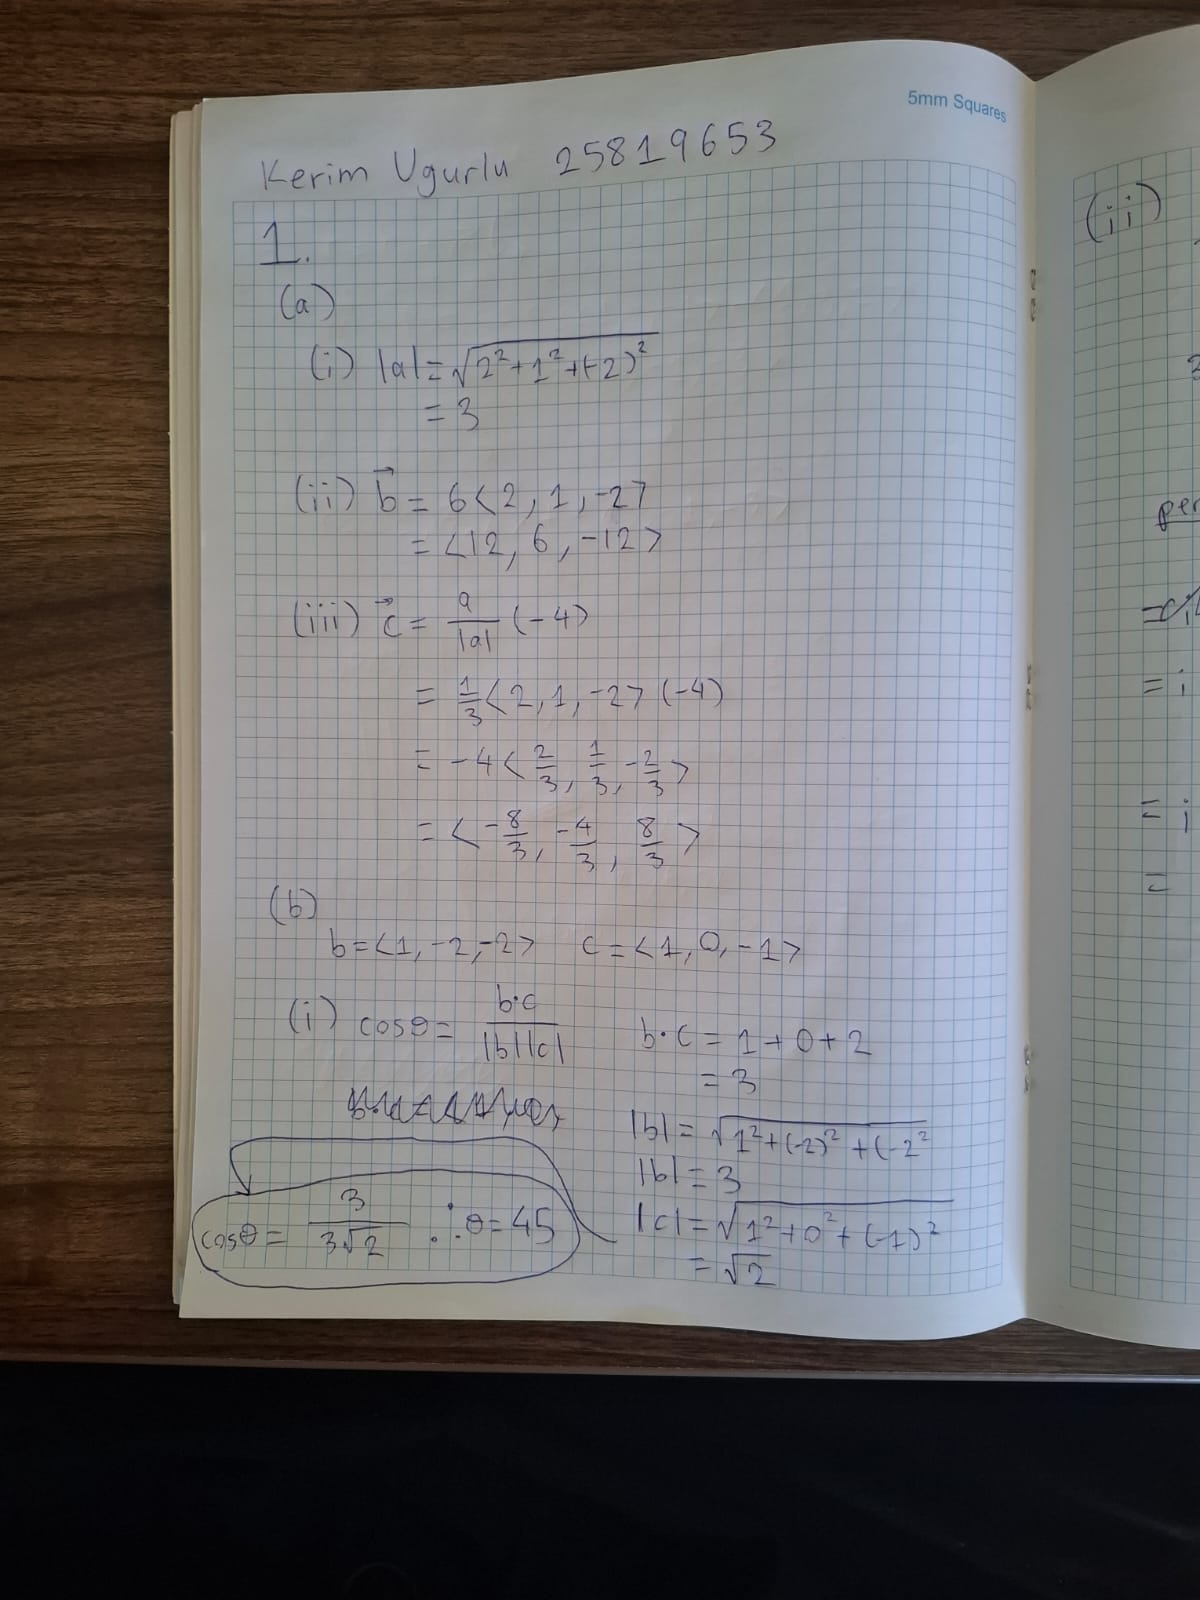 5mm Squares
Kerim Ugurlu 25819653
1.
(a)
(i) |a| = √2²+1²+(-2)²
= 3
(ii) b⃗ = 6<2, 1, -2>
= <12, 6, -12>
(iii) c⃗ = a/|a| (-4)
= 1/3 <2, 1, -2> (-4)
= -4 <2/3, 1/3, -2/3>
= <-8/3, -4/3, 8/3>
(b)
b = <1, -2, -2> c = <1, 0, -1>
(i) cosθ = b·c/|b||c|
b·c = 1+0+2
= 3
|b| = √1²+(-2)²+(-2²
|b| = 3
|c| = √1²+0²+(-1)²
= √2
cosθ = 3/3√2 ∴ θ = 45
(ii)
= i
= i
=